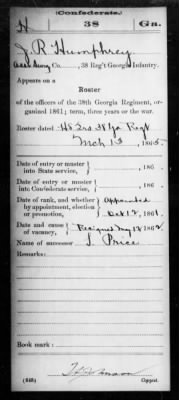 (Confederate.)
H 38 Ga.
J. R. Humphrey
Co. , 38 Reg't Georgia Infantry.
Appears on a
Roster
of the officers of the 38th Georgia Regiment, or-
ganized 1861; term, three years or the war.
Roster dated Hd Qrs 38 Ga Regt
Mch 13, 1865.
Date of entry or muster
into State service, , 186 .
Date of entry or muster
into Confederate service, , 186 .
Date of rank, and whether Appointed
by appointment, election
or promotion, Oct 12, 1861.
Date and cause
of vacancy, Resigned May 12 1862
Name of successor J. Price
Remarks:
Book mark:
Copyist.